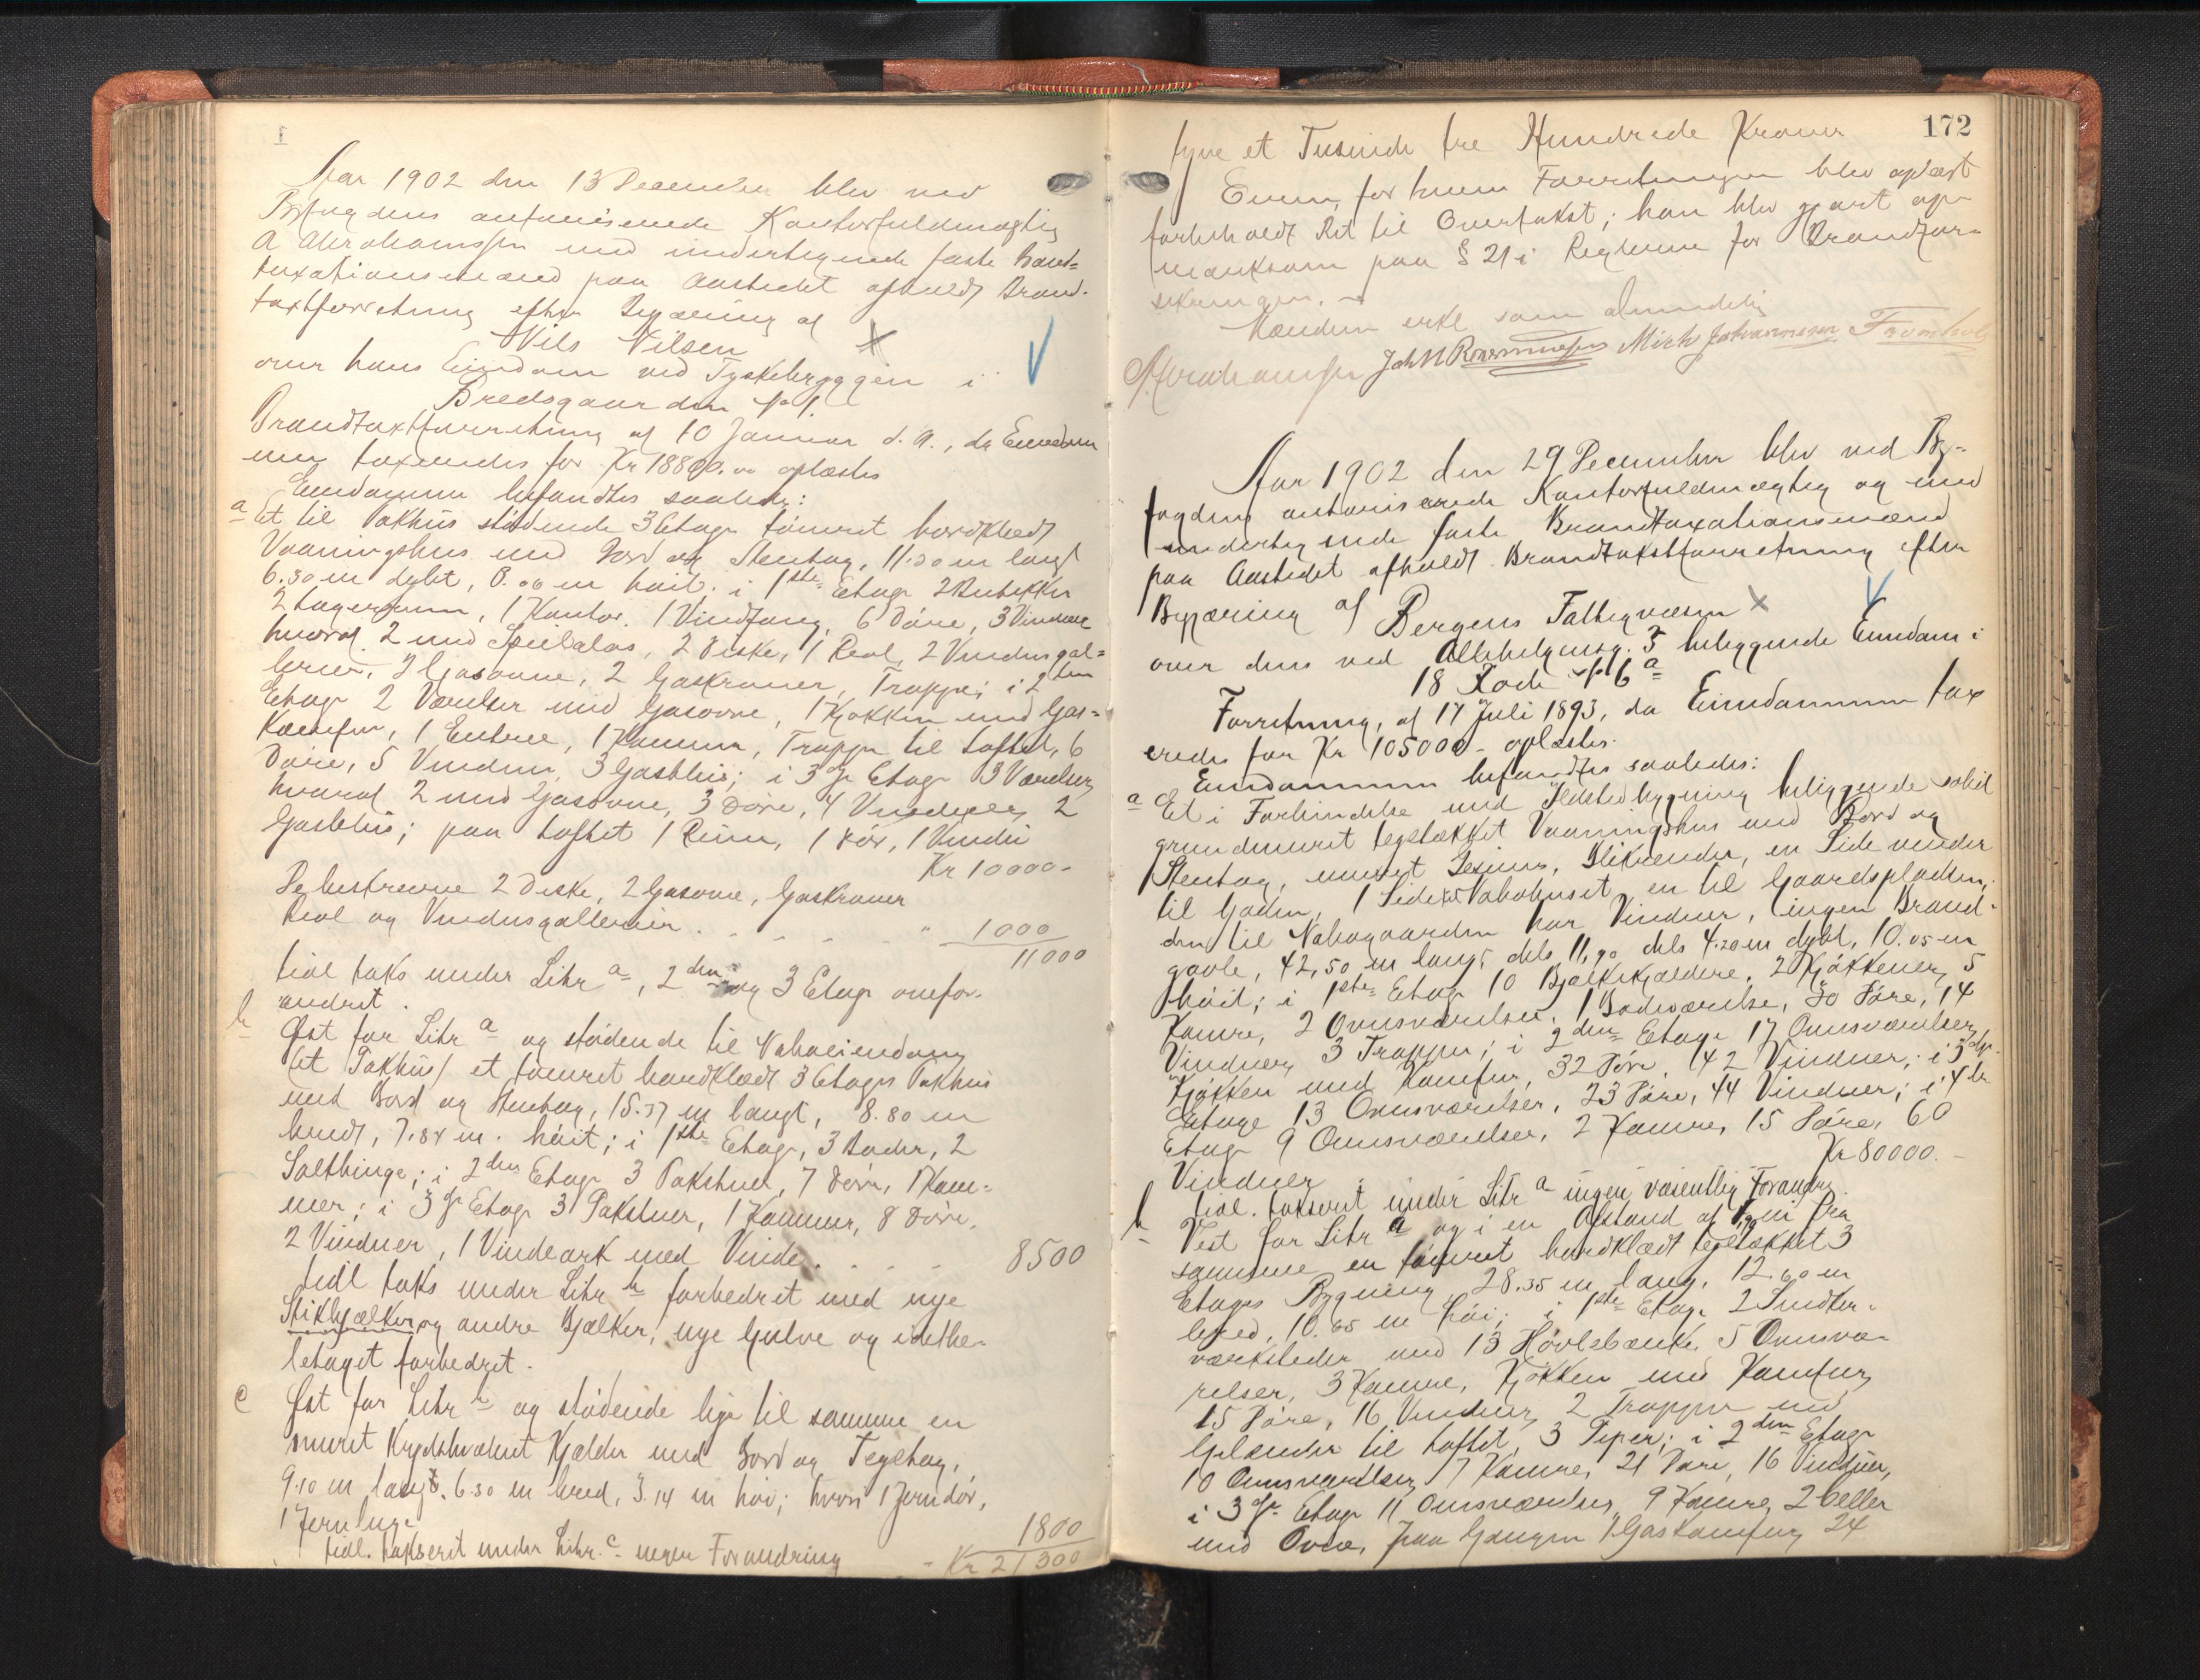 Aar 1902 den 13 December blev ved
Byfogdens autoriserede Kontorfuldmægtig
A Abrahamssen med undertegnede faste Brand=
taxationsmænd paa Aastedet afholdt Brand-
taxtforretning efter Begjæring af
Nils Nilsen
over hans Eiendom ved Tyskebryggen i
Bredsgaarden No 1.
Brandtaxtforretning af 10 Januar d. A., da Eiendom
men taxeredes for Kr 18800.00 oplæstes
Eiendommen befandtes saaledes:
a Et til Pakhus stødende 3 Etages tømret bordklædt
Vaaningshus med Bord og Stentag, 11.20 m langt
6.30 m dybt, 8.00 m høit; i 1ste Etage 2 Butikker
2 Lagerrum, 1 Kontor, 1 Vindfang, 6 Døre, 3 Vinduer
hvoraf 2 med Speilglas, 2 Diske, 1 Reol, 2 Vindusgal=
lerier, 2 Gasovne, 2 Gaskroner, Trappe; i 2den
Etage 2 Værelser med Gasovne, 1 Kjøkken med Gas=
komfur, 1 Entree, 1 Kammer, Trappe til Loftet, 6
Døre, 5 Vinduer, 3 Gasblus; i 3die Etage 3 Værelser
hvoraf 2 med Gasovne, 3 Døre, 4 Vinduer, 2
Gasblus; paa Loftet 1 Rum, 1 Dør, 1 Vindu
Kr 10000-
De bestrevne 2 Diske, 2 Gasovne, Gaskroner
Reol og Vindusgallerier . - - - - " 1000
11000
tidl taks under Litr a, 2den og 3 Etage uefor-
andret.
b Øst for Litr a og stødende til Naboeiendom
(et Pakhus) et tømret bordklædt 3 Etages Pakhus
med Bord og Stentag, 15.37 m langt, 8.80 m
bredt, 7.84 m. høit; i 1ste Etage, 3 Boder, 2
Saltbinge; i 2den Etage 3 Pakstuer, 7 Døre, 1 Kam=
mer; i 3die Etage 3 Pakstuer, 1 Kammer, 8 Døre,
2 Vinduer, 1 Vindeark med Vinde . - - - 8500
tidl taks under Litr b forbedret med nye
Stikbjælker og andre Bjælker, nye Gulve og idethe-
letaget forbedret.
c Øst for Litr b og stødende lige til samme en
muret Krydshvælvet Kjælder med Bord og Tegltag,
9.10 m langt, 6.30 m bred, 3.14 m høi; hvori 1 Jerndør,
1 Jernluge 1800
tidl. takseret under Litr. c ingen Forandring - Kr 21300
172
tyve et Tusinde tre Hundrede Kroner
Eieren, for hvem Forretningen blev oplæst
forbeholdt Ret til Overtakst; han blev gjort op-
mærksom paa § 21 i Reglerne for Brandfor-
sikringen.
Mændene erkl som almindelig
A. Abrahamssen Joh M Mich Johannesen
Aar 1902 den 29 December blev ved By-
fogdens autoriserede Kontorfuldmægtig og med
undertegnede faste Brandtaxationsmænd
paa Aastedet afholdt Brandtakstforretning efter
Begjæring af Bergens Fattigvæsen
over dens ved Allehelgensg. 3 beliggende Eiendom i
18 Rode No 6 a
Forretning, af 17 Juli 1893, da Eiendommen tax
eredes for Kr 105000- oplæstes.
Eiendommen befandtes saaledes:
a Et i Forbindelse med Ildstedbygning beliggende solid
grundmuret teglstækket Vaaningshus med Bord og
Stentag, muret Gesims, Blikrender, en Side vinder
til Gaden, 1 Side til Nabohuset, en til Gaardspladsen,
den til Nabogaarden har Vinduer, (ingen Brand-
gavle, 42,50 m langt, dels 11,90 dels 4.20 m dybt, 10.05 m
høit; i 1ste Etage 10 Bjælkekjældere, 2 Kjøkkener, 5
Kamre, 2 Ovnsværelser, 1 Badeværelse, 30 Døre, 14
Vinduer, 3 Trapper; i 2den Etage 17 Ovnsværelser,
Kjøkken med Komfur, 32 Døre, 42 Vinduer; i 3die
Etage 13 Ovnsværelser, 23 Døre, 44 Vinduer; i 4de
Etage 9 Ovnsværelser, 2 Kamre, 15 Døre, 60
Vinduer Kr 80000.-
tidl. takseret under Litr a ingen væsentlig Forandr.
b Vest for Litr a og i en Afstand af m fra
samme en tømret bordklædt teglstækket 3
Etages Bygning, 28.35 m lang, 12.60 m
bred, 10.65 m høi; i 1ste Etage 2 Snedker-
værksteder med 13 Høvlebænke, 5 Ovnsvæ-
relser, 3 Kamre, Kjøkken med Komfur,
15 Døre, 16 Vinduer, 2 Trapper med
Gelænder til Loftet, 3 Piper; i 2den Etage
10 Ovnsværelser, 7 Kamre, 21 Døre, 16 Vinduer,
i 3die Etage 11 Ovnsværelser, 9 Kamre, 2 Celler
med Ovne, paa Gangen 1 Gaskomfur, 24